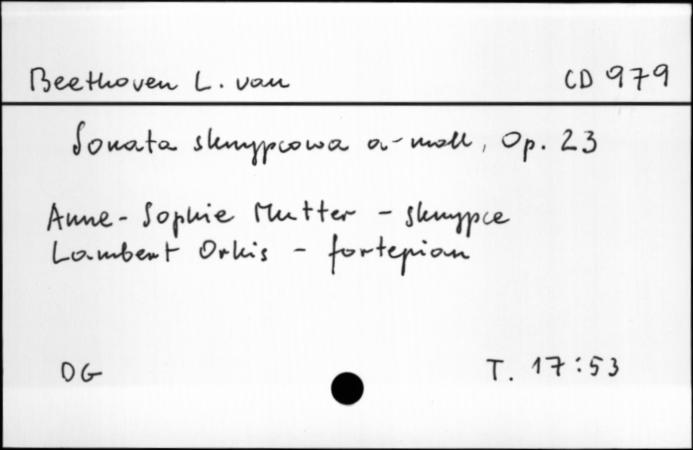 Beethoven L. van CD 979
Sonata skrzypcowa a-moll, Op. 23
Anne-Sophie Mutter - skrzypce
Lambert Orkis - fortepian
DG T. 17:53